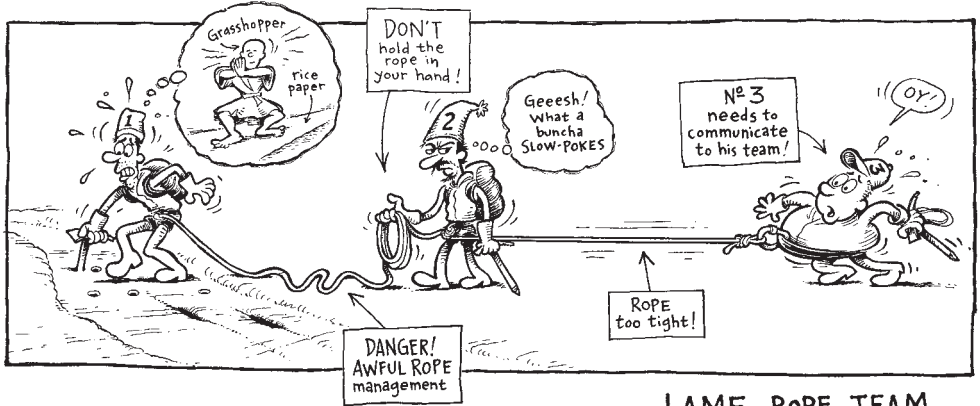 Grasshopper
rice
paper
1
DON'T
hold the
rope in
your hand!
2
Geeesh!
What a
buncha
SLOW-POKES
Nº 3
needs to
communicate
to his team!
OY!
3
ROPE
too tight!
DANGER!
AWFUL ROPE
management
LAME ROPE TEAM